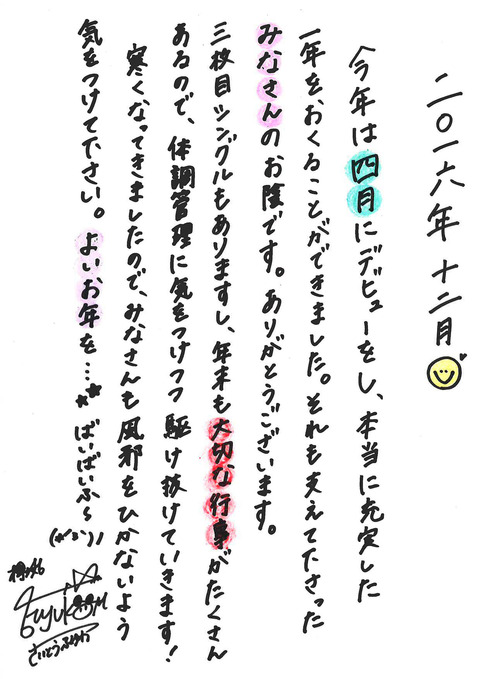 二〇一六年 十二月
今年は四月にデビューをし、本当に充実した
一年をおくることができました。それも支えて下さった
みなさんのお陰です。ありがとうございます。
三枚目シングルもありますし、年末も大切な行事がたくさん
あるので、体調管理に気をつけつつ 駆け抜けていきます!
寒くなってきましたので、みなさんも風邪をひかないよう
気をつけて下さい。よいお年を…** ばいばいふ〜
欅坂46
Fuyuka
さいとうふゆか